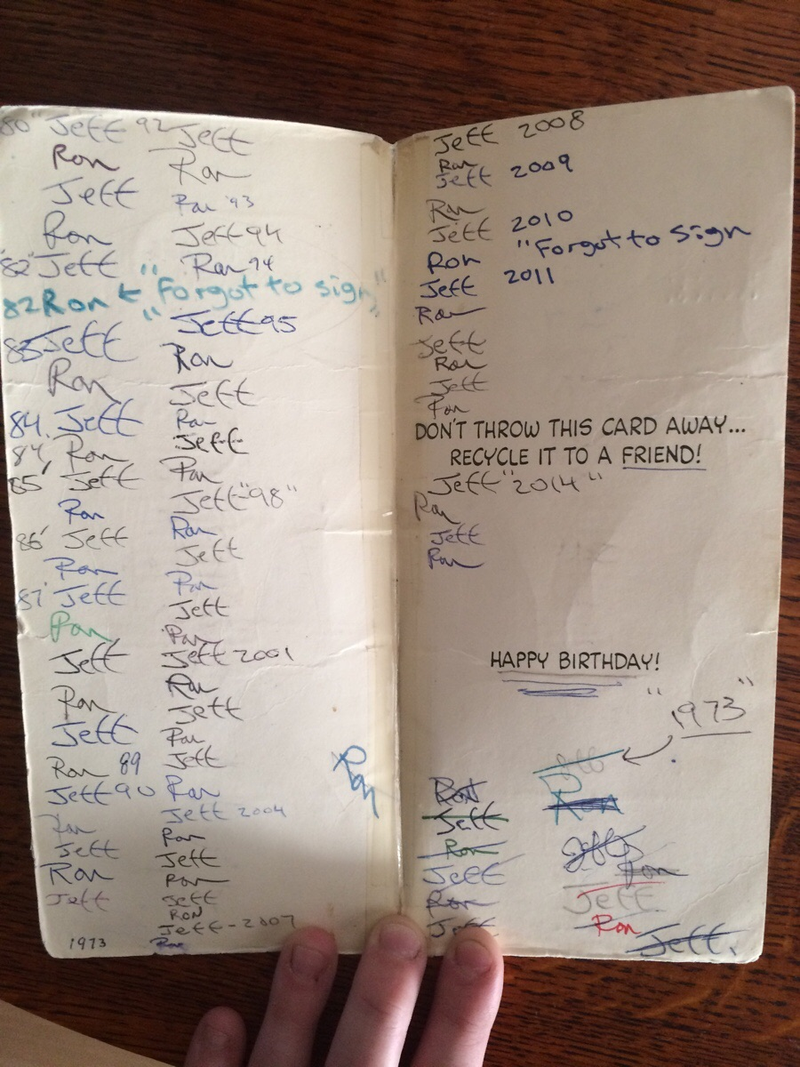 80" Jeff 92 Jeff
Ron Ron
Jeff Ron '93
Ron Jeff 94
"82" Jeff Ron 94
82 Ron ← "Forgot to sign"
Jeff 95
83 Jeff Ron
Ron Jeff
84. Jeff Ron
84' Ron Jeff
85' Jeff Ron
Ron Jeff "98"
86' Jeff Ron
Ron Jeff
87' Jeff Ron
Ron Jeff
Jeff Ron
Ron Jeff 2001
Jeff Ron
Ron 89 Jeff
Jeff 90 Ron
Ron Jeff
Jeff Ron
Ron Jeff 2004
Jeff Ron
1973 Jeff
Ron
Jeff
RON
Jeff - 2007
Ron
Ron
Jeff 2008
Ron
Jeff 2009
Ron
Jeff 2010
Ron "Forgot to sign
Jeff 2011
Ron
Jeff
Ron
Jeff
Ron
DON'T THROW THIS CARD AWAY...
RECYCLE IT TO A FRIEND!
Jeff "2014"
Ron
Jeff
Ron
HAPPY BIRTHDAY!
"1973"
Jeff
Ron Ron
Jeff
Ron Jeff
Jeff Ron
Ron Jeff
Jeff Ron
Jeff.